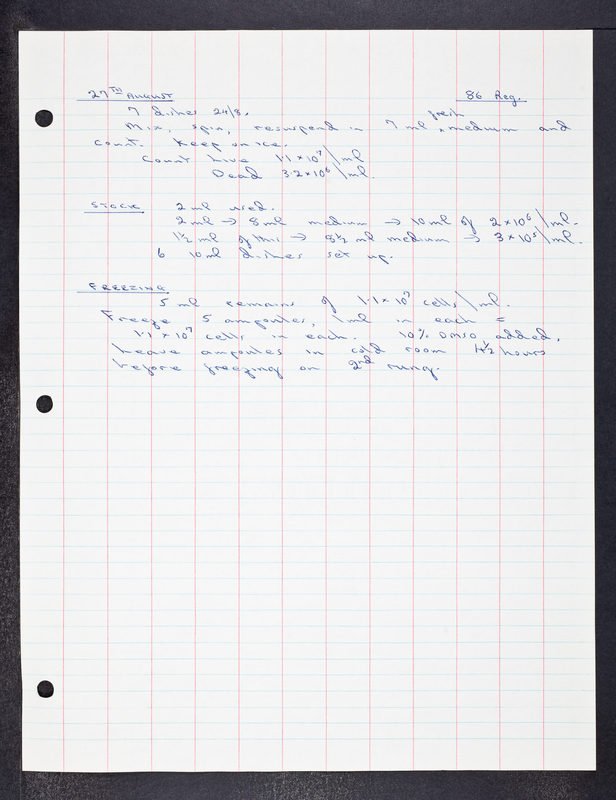 27TH August 86 Reg.
7 dishes 24/8.
Mix, spin, resuspend in 7 ml fresh medium and
count. Keep on ice.
Count Live 1.1 x 10⁷/ml
Dead 3.2 x 10⁶/ml.
STOCK 2 ml used.
2 ml → 8 ml medium → 10 ml of 2 x 10⁶/ml.
1½ ml of this → 8½ ml medium → 3 x 10⁵/ml.
6 10 ml dishes set up.
FREEZING
5 ml remains of 1.1 x 10⁷ cells/ml.
Freeze 5 ampoules, 1ml in each =
1.1 x 10⁷ cells in each. 10% DMSO added.
Leave ampoules in cold room 4½ hours
before freezing on 2nd rung.